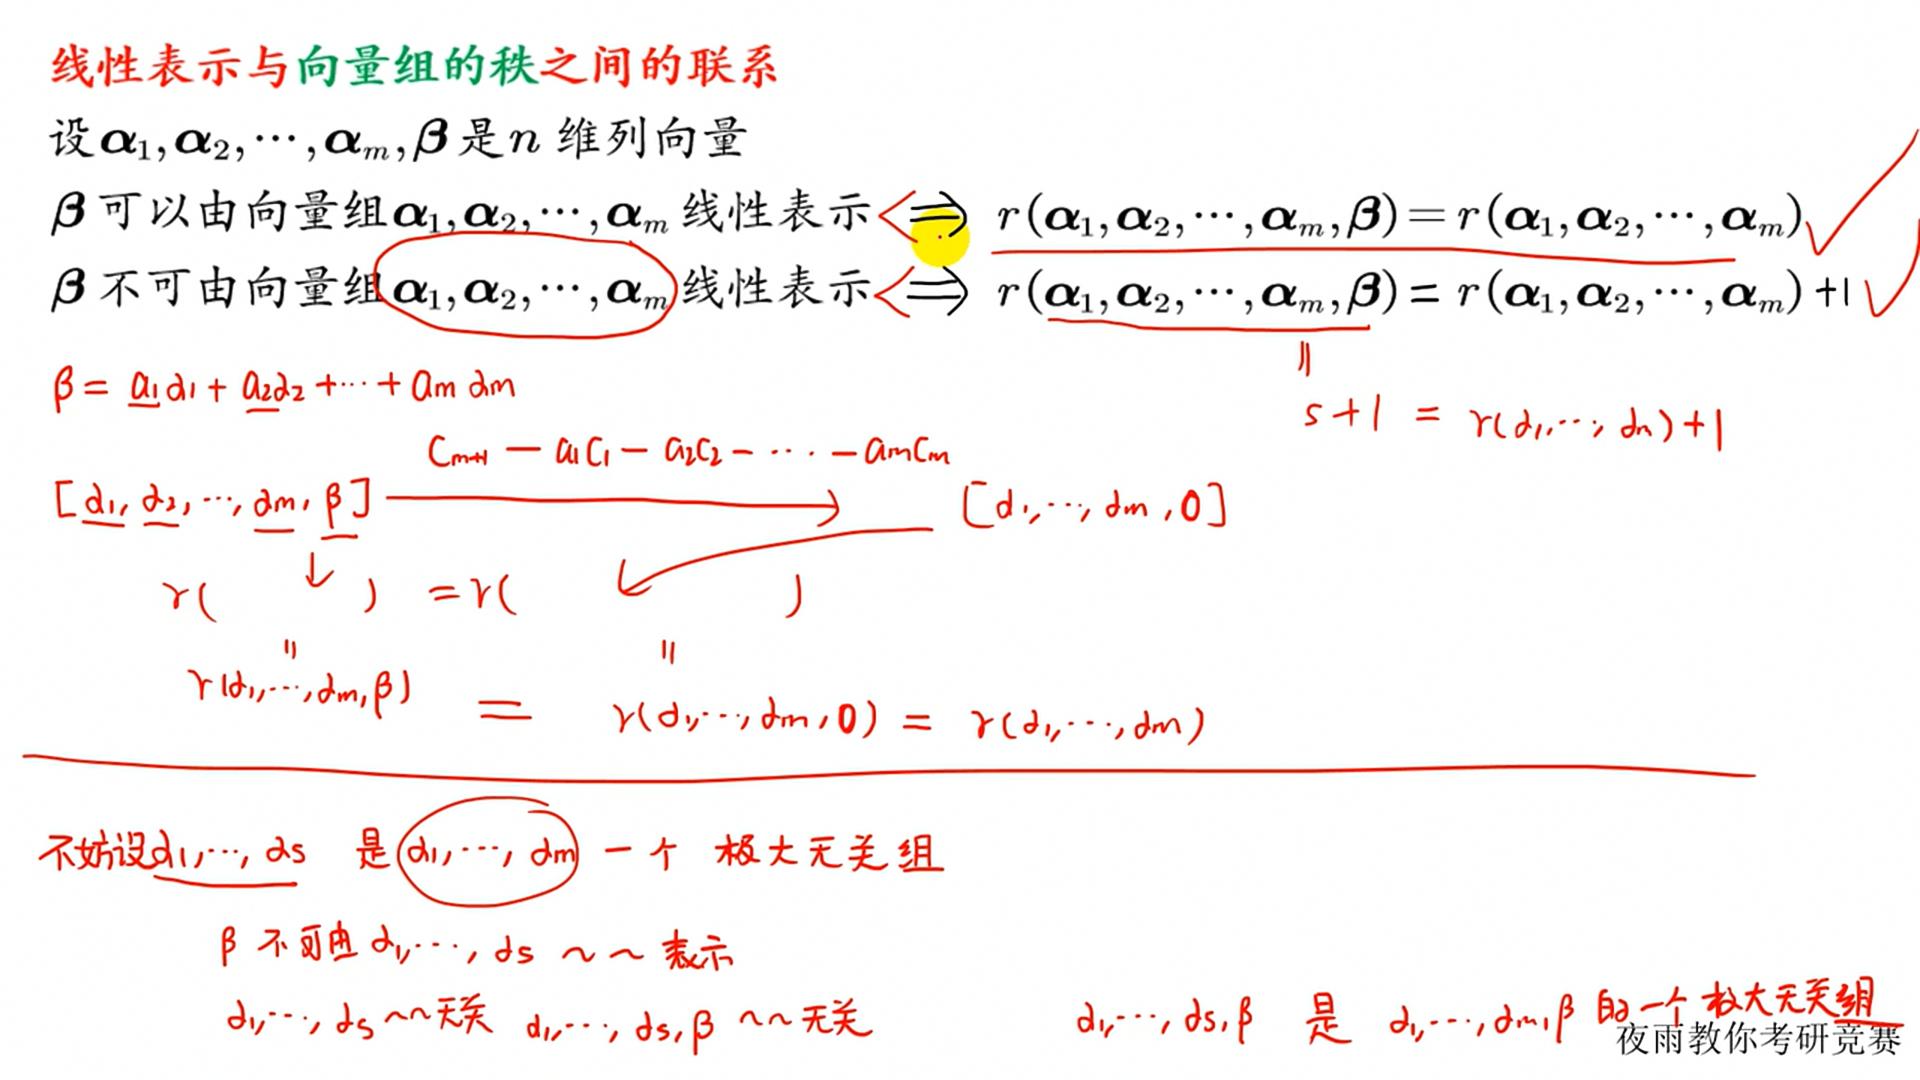 线性表示与向量组的秩之间的联系
设α₁,α₂,⋯,αₘ,β是n 维列向量
β可以由向量组α₁,α₂,⋯,αₘ线性表示 <=> r(α₁,α₂,⋯,αₘ,β)=r(α₁,α₂,⋯,αₘ)
β不可由向量组α₁,α₂,⋯,αₘ线性表示 <=> r(α₁,α₂,⋯,αₘ,β)=r(α₁,α₂,⋯,αₘ)+1
=
β = a₁α₁ + a₂α₂ +⋯+ aₘαₘ
s+1 = r(α₁,⋯,αₙ)+1
Cₘ₊₁ − a₁C₁ − a₂C₂ − ⋯ − aₘCₘ
[α₁, α₂, ⋯, αₘ, β] → [α₁,⋯,αₘ,0]
r( ) = r( )
= =
r(α₁,⋯,αₘ,β) = r(α₁,⋯,αₘ,0) = r(α₁,⋯,αₘ)
不妨设α₁,⋯,αs 是 α₁,⋯,αₘ 一个 极大无关组
β 不可由 α₁,⋯,αs ~~ 表示
α₁,⋯,αs ~~无关 α₁,⋯,αs,β ~~无关 α₁,⋯,αs,β 是 α₁,⋯,αₘ,β 的一个极大无关组
夜雨教你考研竞赛